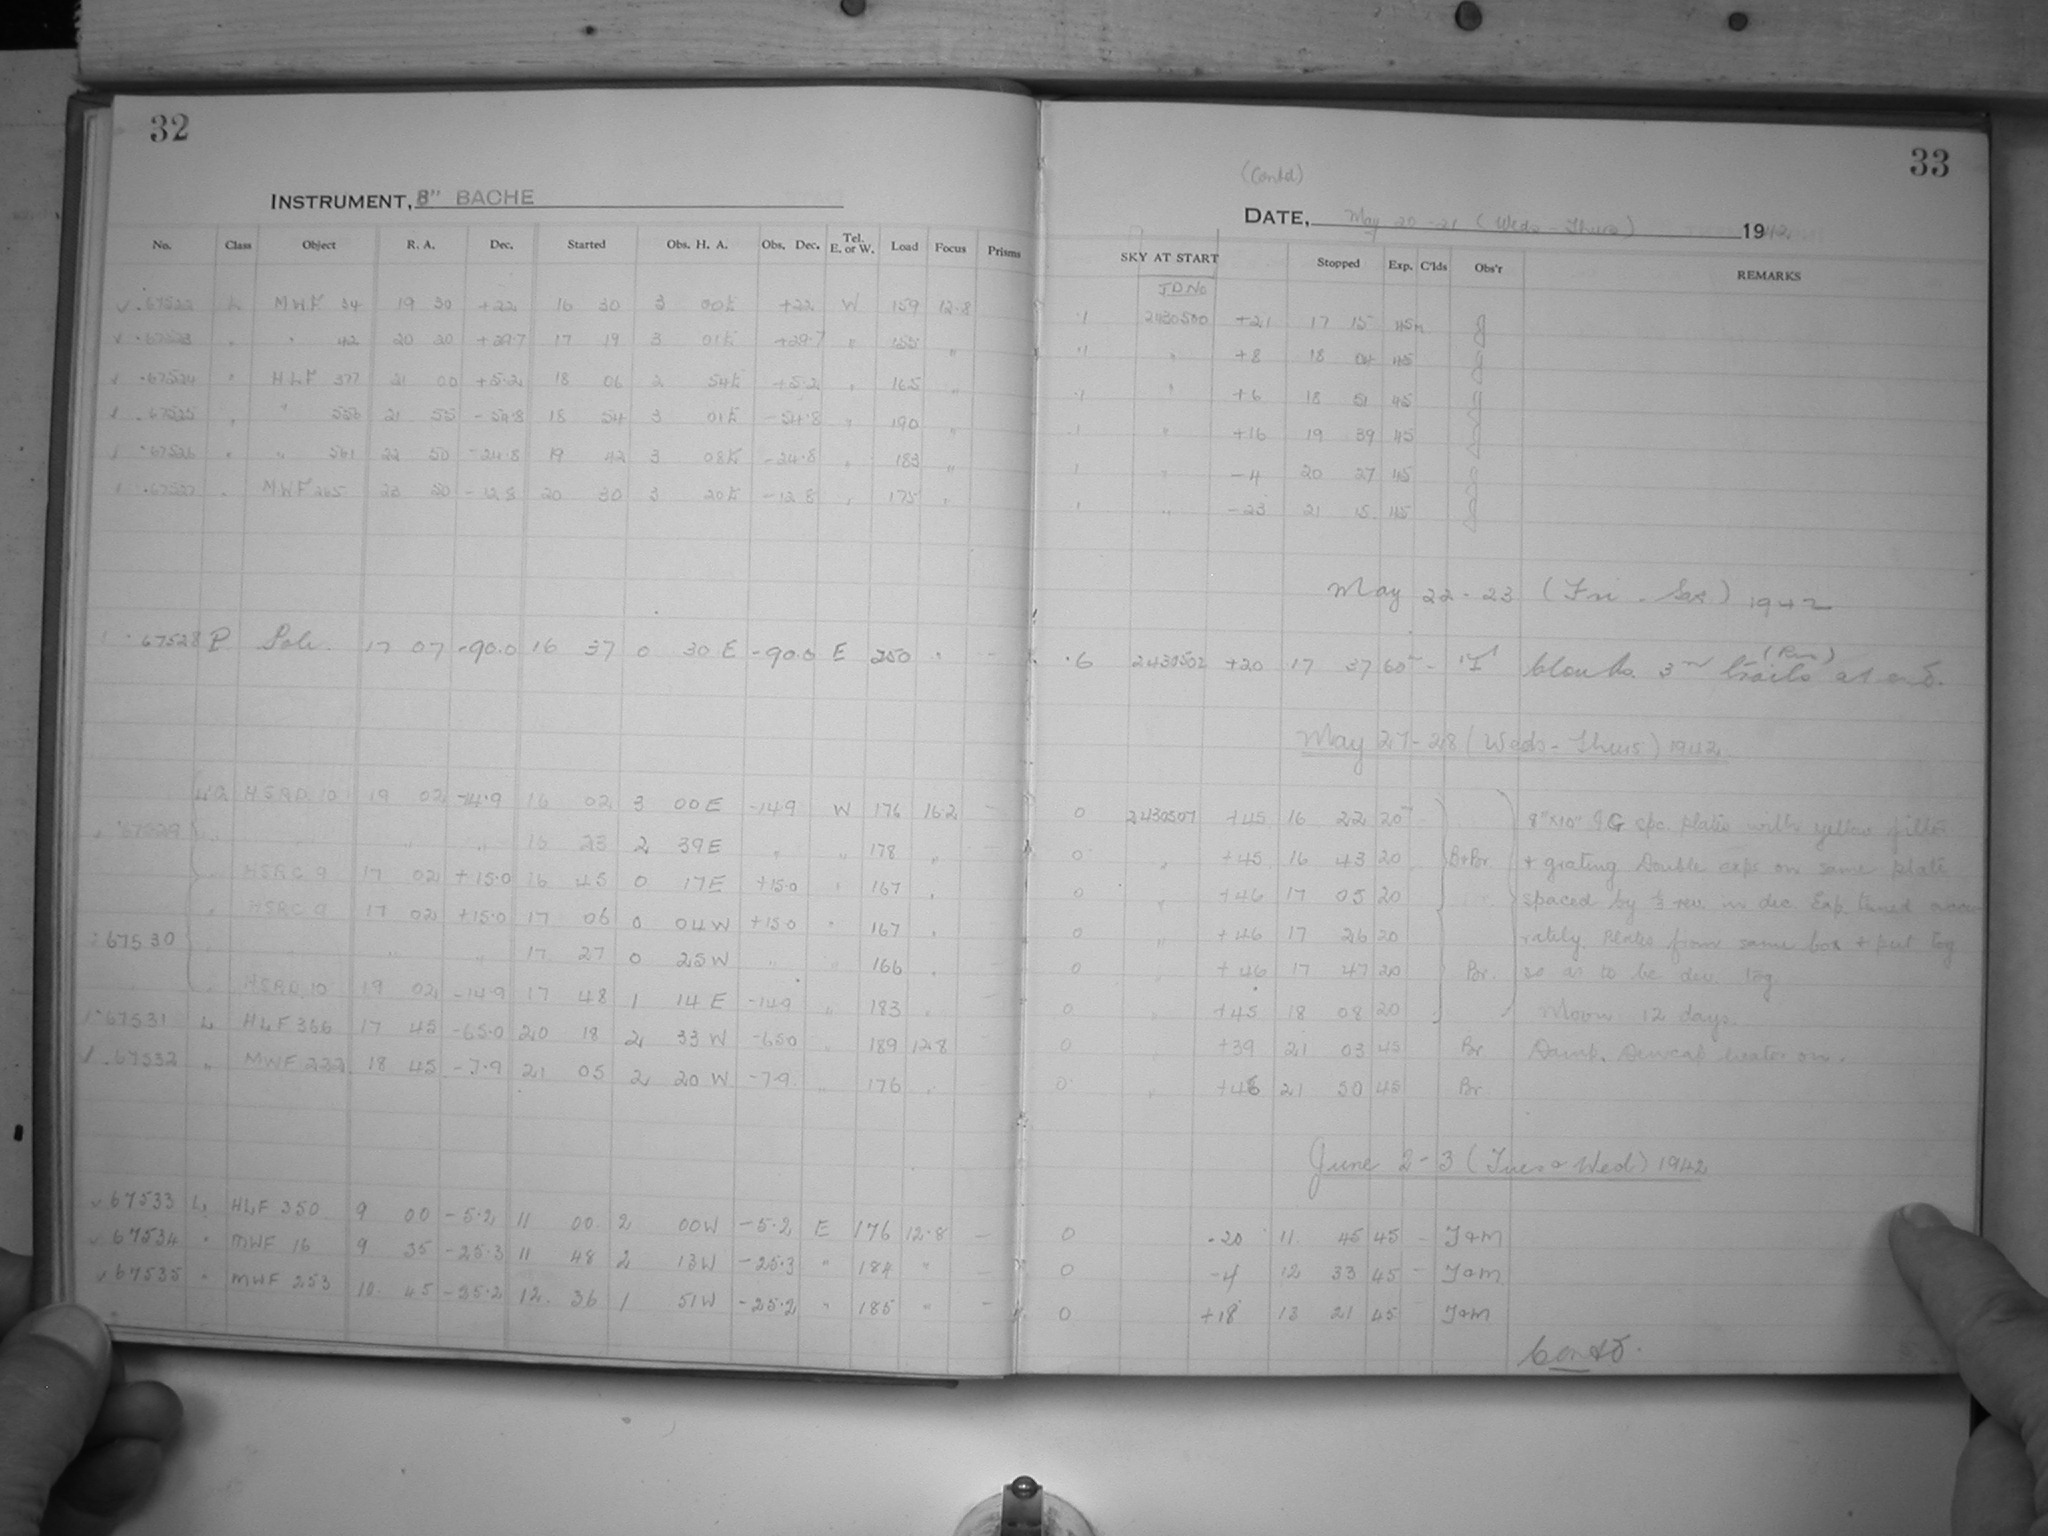 32
INSTRUMENT, 8" BACHE
No. Class Object R. A. Dec. Started Obs. H. A. Obs. Dec. Tel. E. or W. Load Focus Prisms
67522 L MWF 34 19 30 +22 16 30 3 00E +22 W 159 12.8
67523 " " 42 20 20 +29.7 17 19 3 01E +29.7 " 155 "
67524 " HLF 377 21 00 +5.2 18 06 2 54E +5.2 " 165 "
67525 " " 556 21 55 -54.8 18 54 3 01E -54.8 " 190 "
67526 " " 561 22 50 -24.8 19 42 3 08E -24.8 " 183 "
67527 " MWF 265 23 50 -12.8 20 30 3 20E -12.8 " 175 "
67528 P Pole 17 07 -90.0 16 37 0 30 E -90.0 E 250 " -
HSRD 10 19 02 -14.9 16 02 3 00 E -14.9 W 176 16.2 -
67529 " " " 16 23 2 39 E " " 178 "
HSRC 9 17 02 +15.0 16 45 0 17E +15.0 " 167 "
" HSRC 9 17 02 +15.0 17 06 0 04 W +15.0 " 167 "
67530 " " " 17 27 0 25W " " 166 "
" HSRD 10 19 02 -14.9 17 48 1 14 E -14.9 " 183 "
67531 L HLF 366 17 45 -65.0 20 18 2 33 W -65.0 " 189 12.8
67532 " MWF 222 18 45 -7.9 21 05 2 20 W -7.9 " 176 "
67533 L HLF 350 9 00 -5.2 11 00 2 00W -5.2 E 176 12.8 -
67534 " MWF 16 9 35 -25.3 11 48 2 13W -25.3 " 184 " -
67535 " MWF 253 10 45 -25.2 12 36 1 51W -25.2 " 185 " -
33
(Contd)
DATE, May 20-21 (Weds-Thurs) 1942
SKY AT START Stopped Exp. C'lds Obs'r REMARKS
JD No
.1 2430500 +21 17 15 45m
.1 " +8 18 04 45
.1 " +6 18 51 45
.1 " +16 19 39 45
1 " -4 20 27 45
1 " -23 21 15 45
May 22-23 (Fri-Sat) 1942
.6 2430502 +20 17 37 60m - clouds. 3 trails at end.
May 27-28 (Weds-Thurs) 1942
0 2430507 +45 16 22 20m 8"x10" I.G spc. plates with yellow filter
0 " +45 16 43 20 B+Br. + grating Double exps on same plate
0 " +46 17 05 20 spaced by 1/3 rev. in dec. Exp timed accu-
0 " +46 17 26 20 rately. Plates from same box + put tog
0 " +46 17 47 20 Br. so as to be dev. tog.
0 " +45 18 08 20 Moon 12 days.
0 " +39 21 03 45 Br Damp. Dewcap heater on.
0 " 21 50 45 Br.
June 2-3 (Tues-Wed) 1942
0 -20 11 45 45 - J+M
0 -4 12 33 45 - J+M
0 +18 13 21 45 - J+M
Contd.